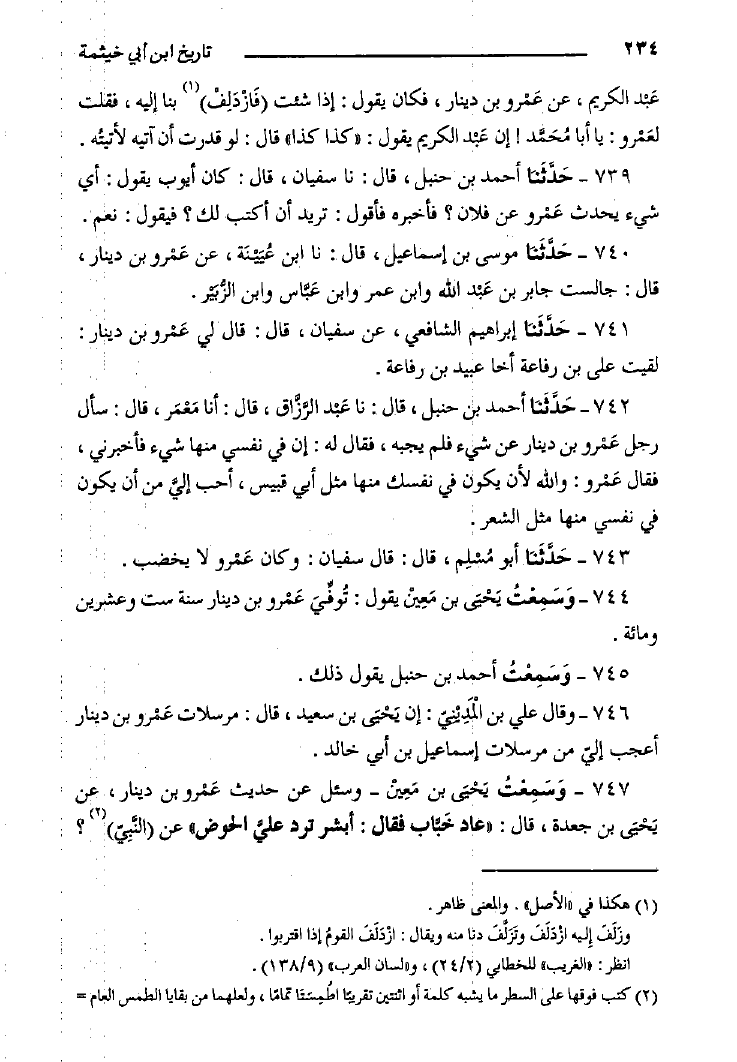 ٢٣٤ تاريخ ابن أبي خيثمة
عَبْد الكريم ، عن عَمْرو بن دينار ، فكان يقول : إذا شئت (فَازْدَلِفْ)(١) بنا إليه ، فقلت
لعَمْرو : يا أبا مُحَمَّد ! إن عَبْد الكريم يقول : «كذا كذا» قال : لو قدرت أن آتيه لأتيتُه .
٧٣٩ ـ حَدَّثَنَا أحمد بن حنبل ، قال : نا سفيان ، قال : كان أيوب يقول : أي
شيء يحدث عَمْرو عن فلان ؟ فأخبره فأقول : تريد أن أكتب لك ؟ فيقول : نعم .
٧٤٠ ـ حَدَّثَنَا موسى بن إسماعيل ، قال : نا ابن عُيَيْنَة ، عن عَمْرو بن دينار ،
قال : جالست جابر بن عَبْد الله وابن عمر وابن عَبَّاس وابن الزُّبَيْر .
٧٤١ ـ حَدَّثَنَا إبراهيم الشافعي ، عن سفيان ، قال : قال لي عَمْرو بن دينار :
لقيت علي بن رفاعة أخا عبيد بن رفاعة .
٧٤٢ ـ حَدَّثَنَا أحمد بن حنبل ، قال : نا عَبْد الرَّزَّاق ، قال : أنا مَعْمَر ، قال : سأل
رجل عَمْرو بن دينار عن شيء فلم يجبه ، فقال له : إن في نفسي منها شيء فأخبرني ،
فقال عَمْرو : والله لأن يكون في نفسك منها مثل أبي قبيس ، أحب إليَّ من أن يكون
في نفسي منها مثل الشعر .
٧٤٣ ـ حَدَّثَنَا أبو مُسْلِم ، قال : قال سفيان : وكان عَمْرو لا يخضب .
٧٤٤ ـ وَسَمِعْتُ يَحْيَى بن مَعِينْ يقول : تُوفِّيَ عَمْرو بن دينار سنة ست وعشرين
ومائة .
٧٤٥ ـ وَسَمِعْتُ أحمد بن حنبل يقول ذلك .
٧٤٦ ـ وقال علي بن الْمَدِيْنِيّ : إن يَحْيَى بن سعيد ، قال : مرسلات عَمْرو بن دينار
أعجب إليّ من مرسلات إسماعيل بن أبي خالد .
٧٤٧ ـ وَسَمِعْتُ يَحْيَى بن مَعِينْ ـ وسئل عن حديث عَمْرو بن دينار ، عن
يَحْيَى بن جعدة ، قال : «عاد خَبَّاب فقال : أبشر ترد عليَّ الحوض» عن (النَّبِيّ)(٢) ؟
(١) هكذا في «الأصل» . والمعنى ظاهر .
وزَلَفَ إليه ازْدَلَفَ وتَزَلَّفَ دنا منه ويقال : ازْدَلَفَ القومُ إذا اقتربوا .
انظر : «الغريب» للخطابي (٢٤/٢) ، و«لسان العرب» (١٣٨/٩) .
(٢) كتب فوقها على السطر ما يشبه كلمة أو اثنتين تقريبًا اطُمِسَتَا تمامًا ، ولعلهما من بقايا الطمس العام =